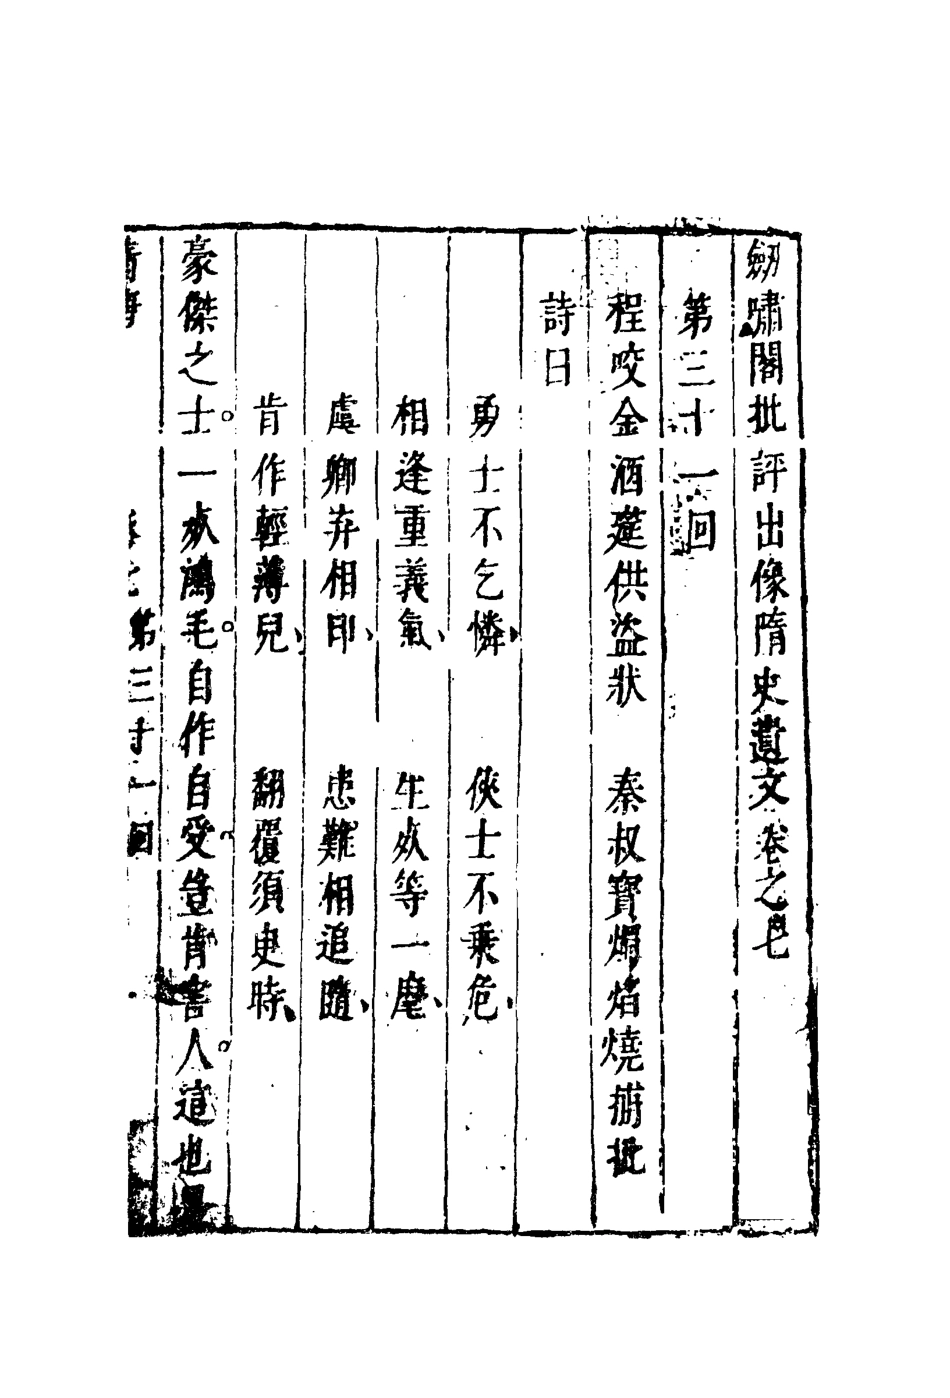 劒嘯閣批評出像隋史遺文卷之七
第三十一回
程咬金酒筵供盜狀　秦叔寶燭焰燒捕批
詩曰
勇士不乞憐、　俠士不乘危、
相逢重義氣、　生死等一麾、
虞卿弃相印、　患難相追隨、
肯作輕薄兒、　翻覆須臾時、
豪傑之士。一死鴻毛。自作自受。豈肯害人。這也是
第三十一回